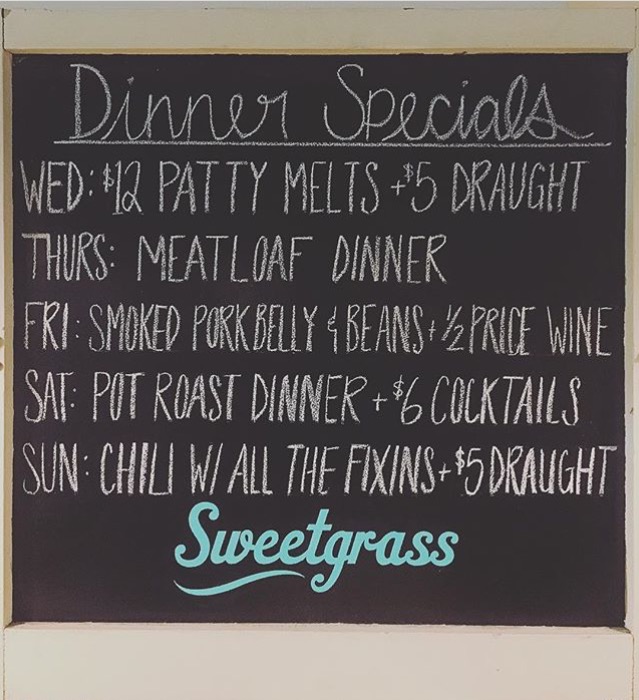 Dinner Specials
WED: $12 PATTY MELTS + $5 DRAUGHT
THURS: MEATLOAF DINNER
FRI: SMOKED PORKBELLY & BEANS + ½ PRICE WINE
SAT: POT ROAST DINNER + $6 COCKTAILS
SUN: CHILI W/ ALL THE FIXINS + $5 DRAUGHT
Sweetgrass